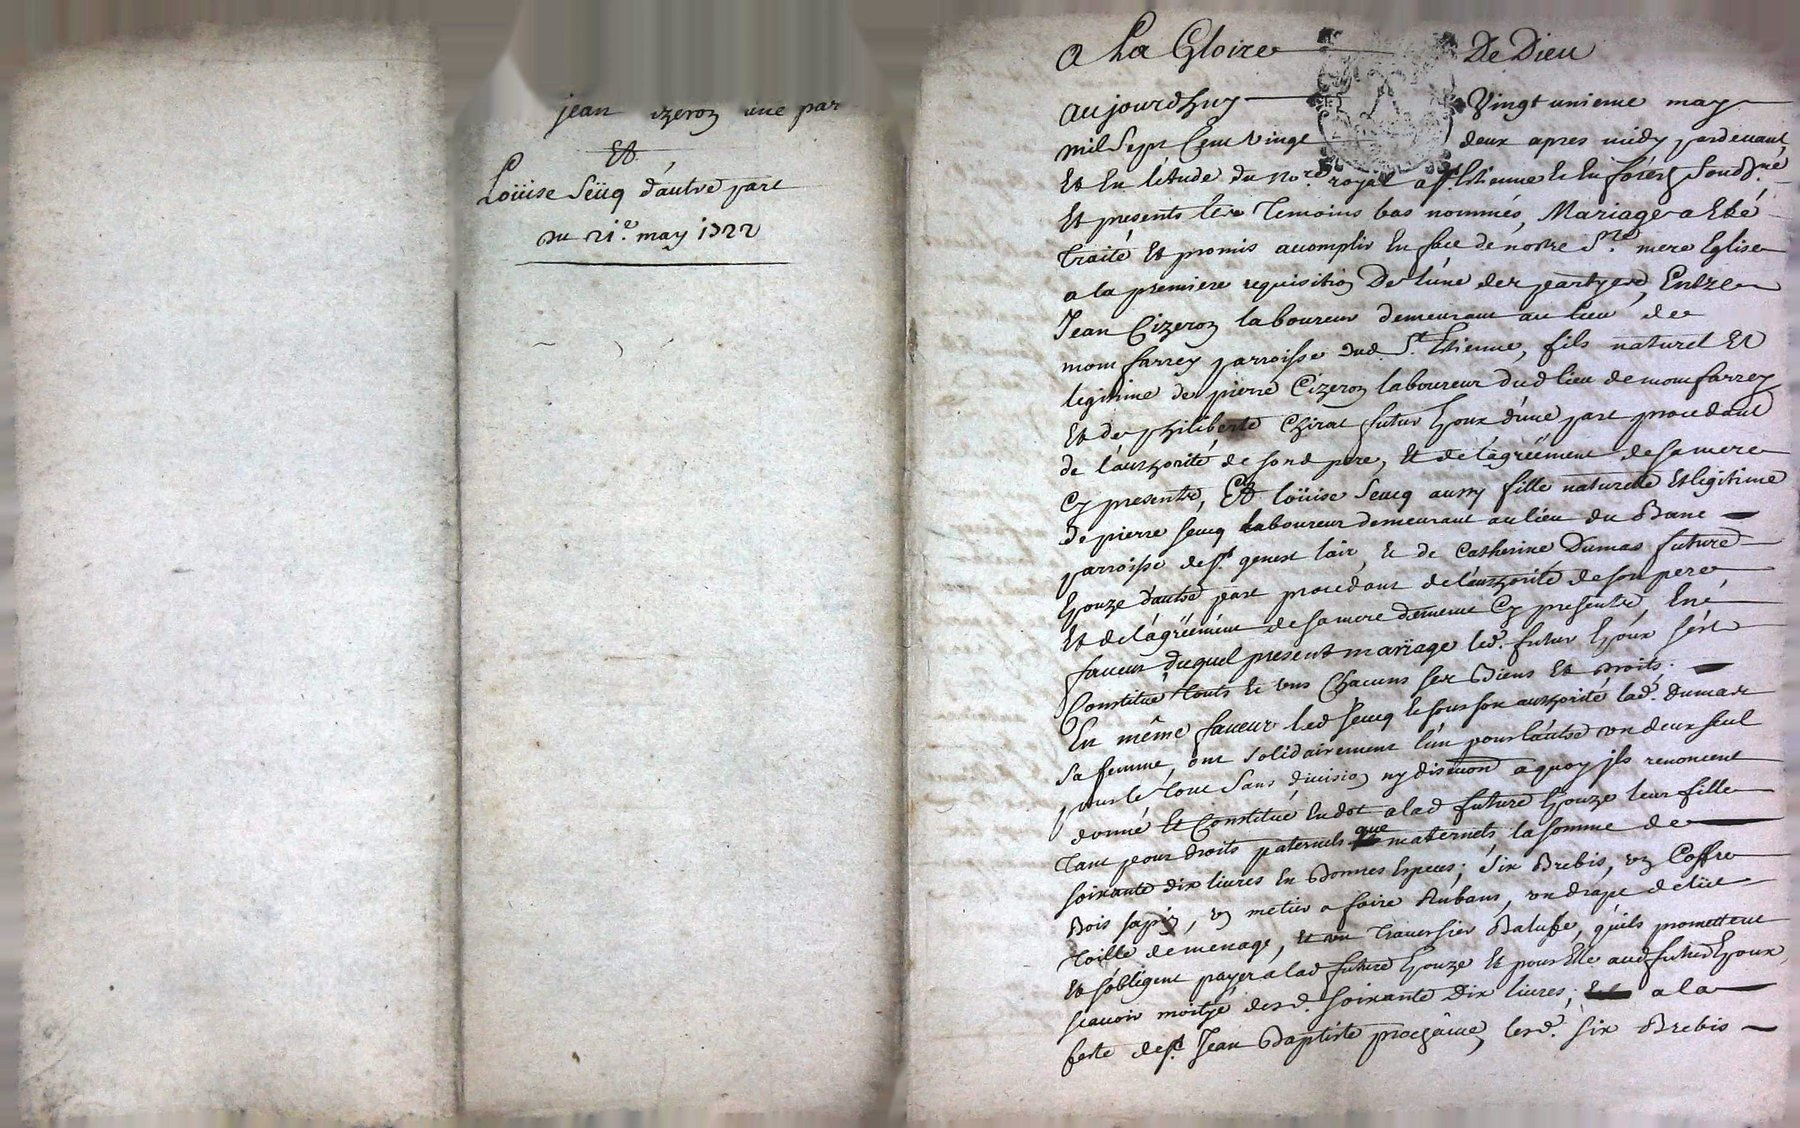 jean izeron une par
Et
Loüise Seüq d'autre part
du 21e. may 1722
A La Gloire De Dieu
Aujourdhuy Vingt unieme may
mil Sept Cent Vingt deux apres midy pardevant
Et En l'étude du Nore. royal a St. Estienne Et En foréz Soubné.
Et presents les Temoins bas nommés, Mariage a Eté
Traité Et promis accomplir En face de nostre Ste. mere Eglise
a la premiere requisition De l'une des partyes, Entre
Jean Cizeron laboureur demeurant au lieu de
momfarrey parroisse dud. St. Estienne, fils naturel Et
legitime de pierre Cizeron laboureur dud lieu de momfarrey
Et de philiberte Chirat futur Epoux d'une part procedant
de l'authorité de sond pere, Et de l'agréement de sa mere
Cy presents, Et loüise Seuq aussy fille naturelle Et legitime
de pierre Seuq laboureur demeurant au lieu du Banc
parroisse de St. genest lair, Et de Catherine Dumas future
Epouze d'autre part procedant de l'authorité de son pere
Et de l'agréement de sa mere demême Cy presents, En
faveur duquel present mariage led. futur Epoux s'est
Constitué touts Et uns Chacuns ses Biens Et droits.
En même faveur led Seuq Et sous son authorité lad. dumas
sa femme, ont solidairement l'un pour l'autre un deux seul
pour le tout sans division ny discution a quoy ils renoncent
donné Et Constitué En dot a lad future Epouze leur fille
tant pour droits paternels que maternels la somme de
soixante dix livres En Bonnes Especes; six Brebis, un Coffre
Bois sapin, un metier a faire Rubans, un drapt de lict
toille de menage, Et un Traversier Baluffe, qu'ils promettent
Et s'obligent payer a lad future Epouze Et pour Elle aud futur Epoux,
scavoir moitye desd. soixante dix livres; a la
feste de St. Jean Baptiste prochaine, lesd. six Brebis